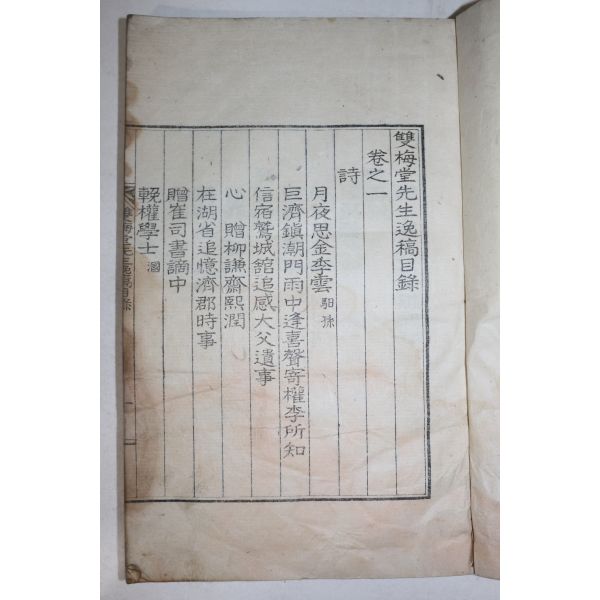 雙梅堂先生逸稿目錄
卷之一
詩
月夜思金季雲 馹孫
巨濟鎭潮門雨中逢喜聲寄權李所知
信宿鷲城舘追感大父遺事
心 贈柳謙齋熙潤
在湖省追憶濟郡時事
贈崔司書謫中
輓權學士
雙梅堂先生逸稿目錄